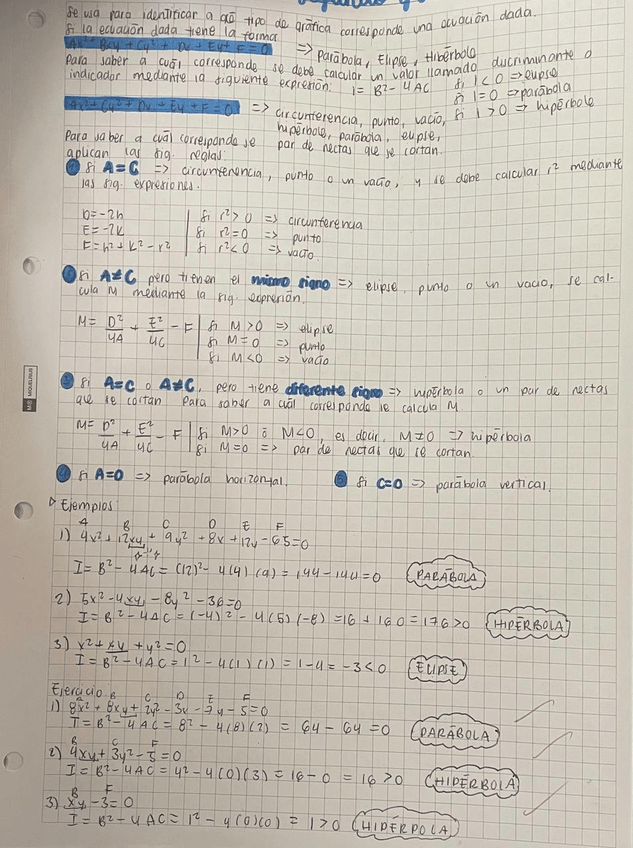 Se usa para identificar a qué tipo de gráfica corresponde una ecuación dada.
Si la ecuación dada tiene la forma:
Ax² + Bxy + Cy² + Dx + Ey + F = 0 => Parábola, Elipse, Hibérbola
Para saber a cuál corresponde se debe calcular un valor llamado discriminante o
indicador mediante la siguiente expresión: I = B² - 4AC si I < 0 => elipse
si I = 0 => parábola
si I > 0 => hipérbole
Ax² + Cy² + Dx + Ey + F = 0 => circunferencia, punto, vacío,
hipérbole, parábola, elipse,
par de rectas que se cortan.
Para saber a cuál corresponde se
aplican las sig. reglas:
① Si A=C => circunferencia, punto o un vacío, y se debe calcular r² mediante
las sig. expresiones.
D = -2h | Si r² > 0 => circunferencia
E = -2K | Si r² = 0 => punto
F = h² + K² - r² | Si r² < 0 => vacío
② Si A≠C pero tienen el mismo signo => elipse, punto o un vacío, se cal-
cula M mediante la sig. expresión.
M = D²/4A + E²/4C - F | Si M > 0 => elipse
Si M = 0 => punto
Si M < 0 => vacío
③ Si A=C o A≠C, pero tiene diferente signo => hipérbola o un par de rectas
que se cortan. Para saber a cuál corresponde se calcula M
M = D²/4A + E²/4C - F | Si M > 0 ó M < 0, es decir, M ≠ 0 => hipérbola
Si M = 0 => par de rectas que se cortan.
④ Si A=0 => parábola horizontal. ⑤ Si C=0 => parábola vertical.
MIQUELRIUS
▷ Ejemplos:
A B C D E F
1) 4x² + 12xy + 9y² + 8x + 12y - 65 = 0
I = B² - 4AC = (12)² - 4(4)(9) = 144 - 144 = 0 PARÁBOLA
2) 5x² - 4xy - 8y² - 36 = 0
I = B² - 4AC = (-4)² - 4(5)(-8) = 16 + 160 = 176 > 0 HIPÉRBOLA
3) x² + xy + y² = 0
I = B² - 4AC = 1² - 4(1)(1) = 1 - 4 = -3 < 0 ELIPSE
Ejercicio
A B C D E F
1) 8x² + 8xy + 2y² - 3x - 2y - 5 = 0
I = B² - 4AC = 8² - 4(8)(2) = 64 - 64 = 0 PARÁBOLA
B C F
2) 4xy + 3y² - 5 = 0
I = B² - 4AC = 4² - 4(0)(3) = 16 - 0 = 16 > 0 HIPÉRBOLA
B F
3) xy - 3 = 0
I = B² - 4AC = 1² - 4(0)(0) = 1 > 0 HIPÉRBOLA